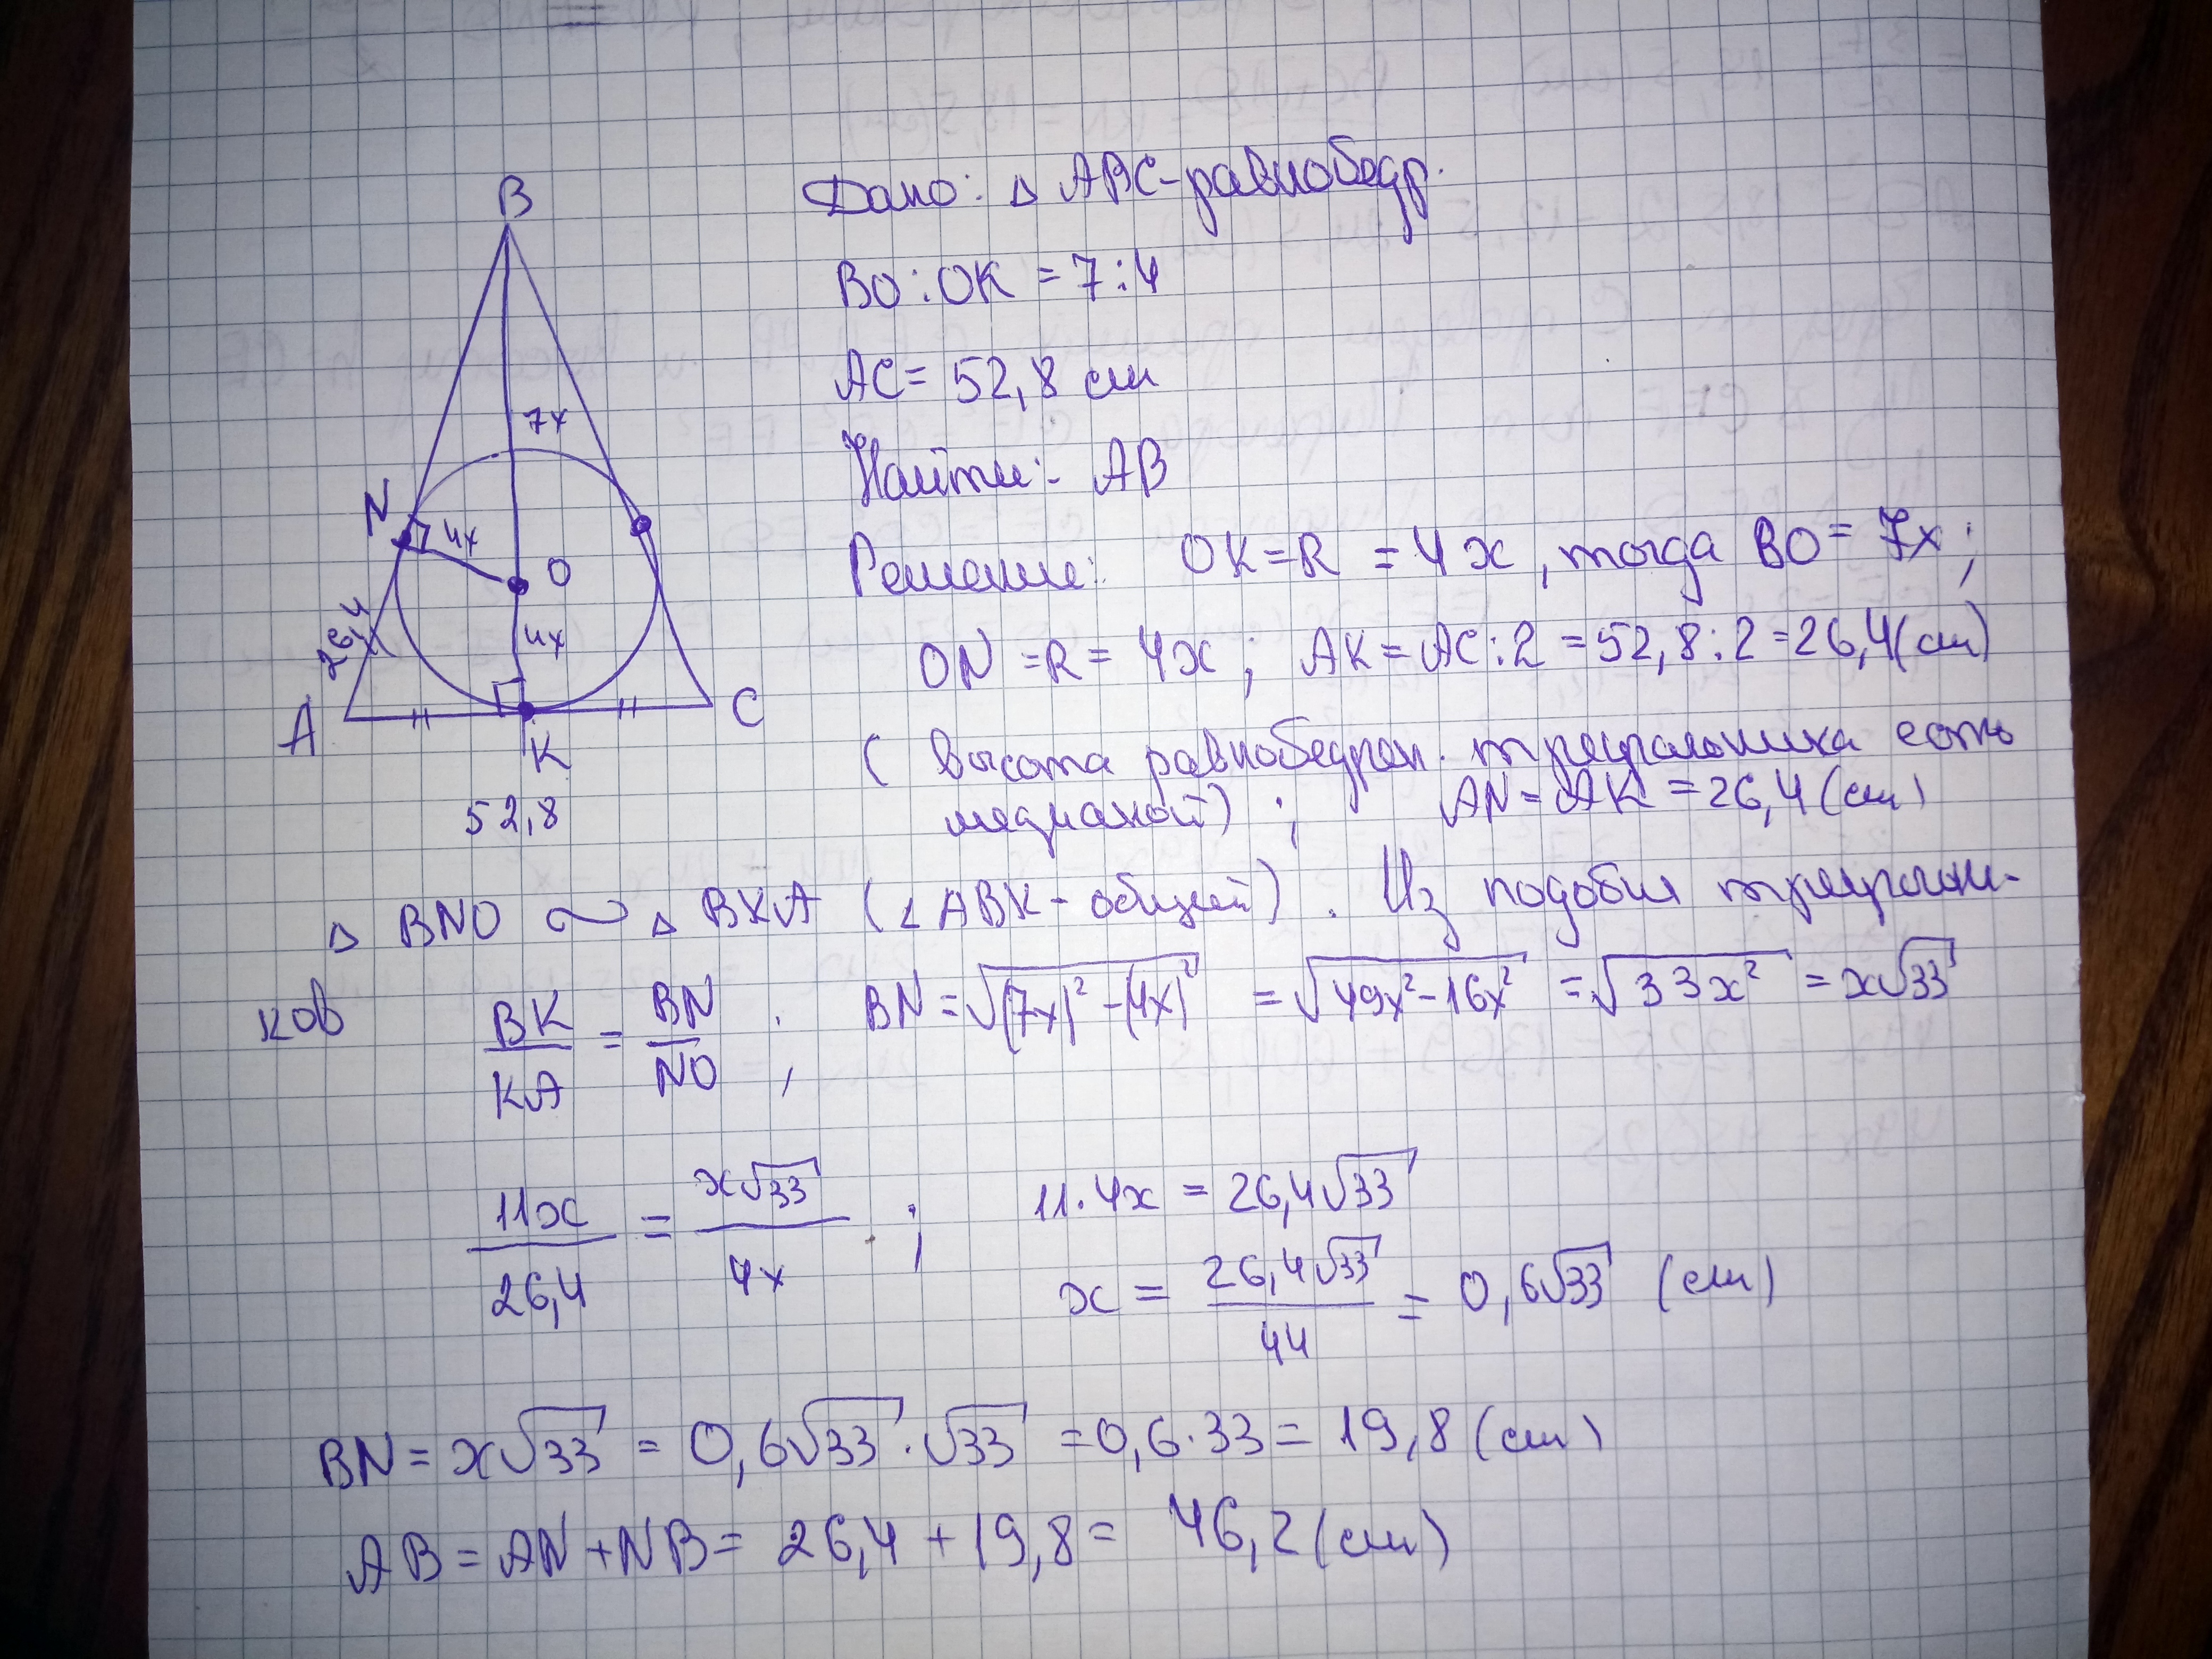 Дано: Δ ABC-равнобедр.
BO:OK = 7:4
AC= 52,8 см
Найти: AB
Решение: OK=R = 4x, тогда BO= 7x;
ON =R= 4x; AK= AC:2 =52,8:2=26,4(см)
( высота равнобедрен. треугольника есть
медианой) ; AN=AK=26,4(см)
B
7x
N
4x
O
26,4
4x
A
C
K
52,8
Δ BNO ∾ Δ BKA (∠ABK- общий). Из подобия треугольни-
ков BK/KA = BN/NO ; BN=√((7x)²-(4x)²) =√(49x²-16x²) =√(33x²) =x√33
11x/26,4 = x√33/4x ; 11·4x = 26,4√33
x = 26,4√33/44 = 0,6√33 (см)
BN= x√33 = 0,6√33·√33 =0,6·33= 19,8(см)
AB=AN+NB= 26,4+19,8= 46,2(см)